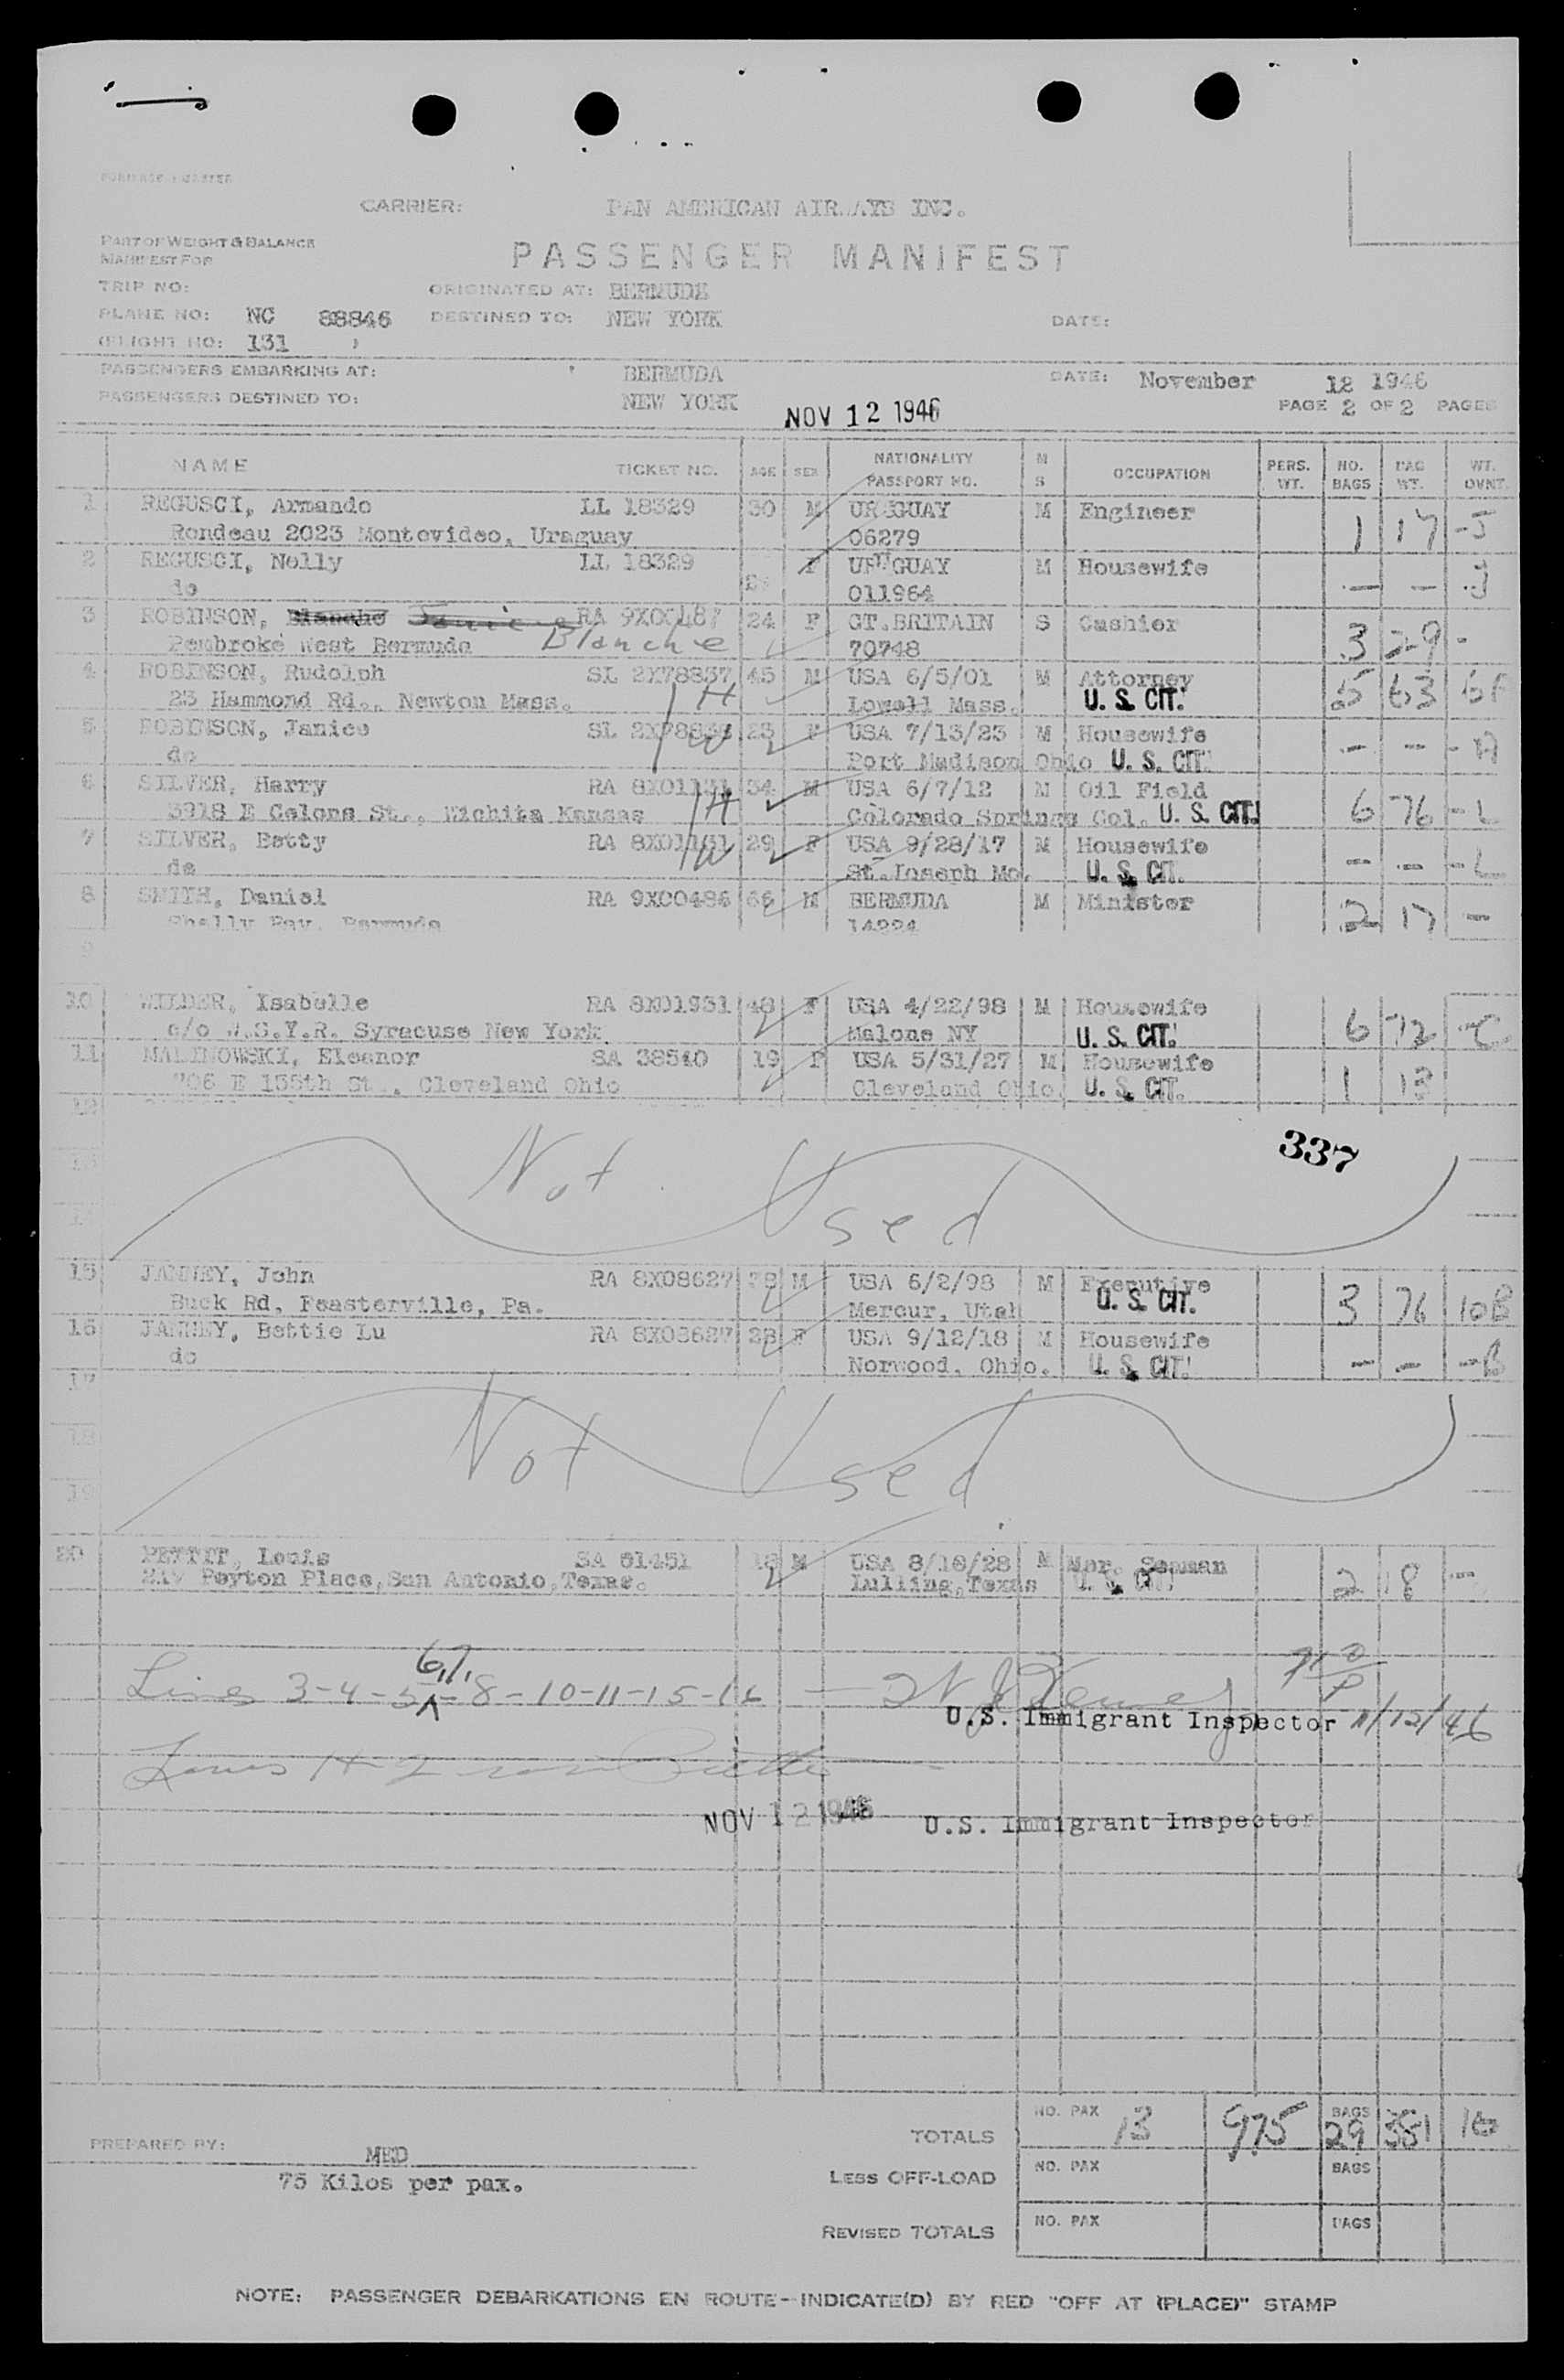 CARRIER: PAN AMERICAN AIRWAYS INC.
PART OF WEIGHT & BALANCE
MANIFEST FOR
PASSENGER MANIFEST
TRIP NO: ORIGINATED AT: BERMUDA
PLANE NO: NC 88846 DESTINED TO: NEW YORK DATE:
(FLIGHT NO: 131 )
PASSENGERS EMBARKING AT: BERMUDA DATE: November 12 1946
PASSENGERS DESTINED TO: NEW YORK NOV 12 1946 PAGE 2 OF 2 PAGES
NAME TICKET NO. AGE SEX NATIONALITY PASSPORT NO. M S OCCUPATION PERS. WT. NO. BAGS BAG WT. WT. OVNT.
1 REGUSCI, Armando LL 18329 30 M URUGUAY M Engineer 1 17 -J
Rondeau 2023 Montevideo, Uraguay 06279
2 REGUSCI, Nelly LL 18329 F URUGUAY M Housewife - - -J
do 011964
3 ROBINSON, Blanche Janice RA 9X00487 24 F GT.BRITAIN S Cashier 3 29 -
Pembroke West Bermuda Blanche 70748
4 ROBINSON, Rudolph SL 2X78837 45 M USA 6/5/01 M Attorney 5 63 6A
23 Hammond Rd., Newton Mass. H Lowell Mass. U. S. CIT.
5 ROBINSON, Janice SL 2X78838 23 F USA 7/13/23 M Housewife - - -A
do W Port Madison Ohio U. S. CIT.
6 SILVER, Harry RA 8X01131 34 M USA 6/7/12 M Oil Field 6 76 -L
3918 E Galena St., Wichita Kansas H Colorado Springs Col. U. S. CIT.
7 SILVER, Betty RA 8X01131 29 F USA 9/28/17 M Housewife - - -L
do W St.Joseph Mo. U. S. CIT.
8 SMITH, Daniel RA 9X00486 66 M BERMUDA M Minister 2 17 -
Shelly Bay, Bermuda 14224
9
10 WILDER, Isabelle RA 8X01931 48 F USA 4/22/98 M Housewife 6 72 -C
c/o W.S.Y.R. Syracuse New York Malone NY U. S. CIT.
11 MALINOWSKI, Eleanor SA 38540 19 F USA 5/31/27 M Housewife 1 13
706 E 155th St., Cleveland Ohio Cleveland Ohio. U. S. CIT.
12
Not Used 337
13
14
15 JANNEY, John RA 8X08627 M USA 6/2/98 M Executive 3 76 10B
Buck Rd, Feasterville, Pa. Mercur, Utah U. S. CIT.
16 JANNEY, Bettie Lu RA 8X08627 28 F USA 9/12/18 M Housewife - - -B
do Norwood, Ohio. U. S. CIT.
17
Not Used
18
19
20 PETTIT, Louis SA 51451 18 M USA 8/18/28 M Mer. Seaman 2 18 -
Peyton Place, San Antonio, Texas. Lulling, Texas U. S. CIT.
6,7,
Lines 3-4-5-8-10-11-15-16
U.S. Immigrant Inspector 11/12/46
NOV 12 1946 U.S. Immigrant Inspector
TOTALS NO. PAX 13 975 BAGS 29 381 16
PREPARED BY: MED
75 Kilos per pax.
LESS OFF-LOAD NO. PAX BAGS
REVISED TOTALS NO. PAX BAGS
NOTE: PASSENGER DEBARKATIONS EN ROUTE--INDICATE(D) BY RED "OFF AT (PLACE)" STAMP